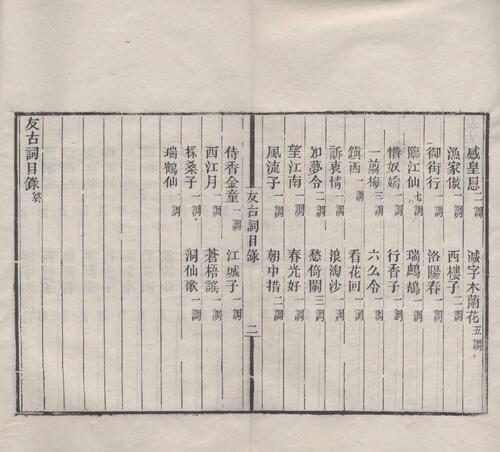 感皇恩二調 減字木蘭花五調
漁家傲一調 西樓子二調
御街行一調 洛陽春一調
臨江仙七調 瑞鷓鴣一調
惜奴嬌一調 行香子一調
一翦梅三調 六么令一調
鎮西一調 看花回一調
訴衷情一調 浪淘沙一調
如夢令二調 愁倚闌三調
望江南一調 春光好一調
風流子一調 朝中措二調
友古詞目錄 二
侍香金童一調 江城子一調
西江月一調 蒼梧謠一調
採桑子一調 洞仙歌一調
瑞鶴仙一調
友古詞目錄終